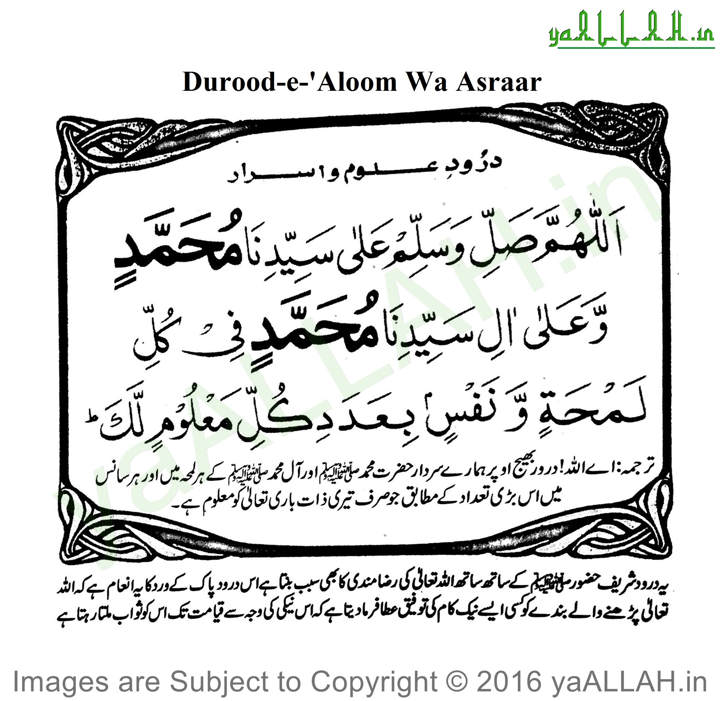 yaALLAH.in
Durood-e-'Aloom Wa Asraar
درُودِ علوم و اسرار
اَللّٰهُمَّ صَلِّ وَسَلِّمْ عَلٰى سَيِّدِنَا مُحَمَّدٍ
وَّعَلٰى اٰلِ سَيِّدِنَا مُحَمَّدٍ فِىْ كُلِّ
لَمْحَةٍ وَّنَفْسٍ بِعَدَدِ كُلِّ مَعْلُوْمٍ لَّكَ ط
ترجمہ: اے اللہ! درور بھیج اوپر ہمارے سردار حضرت محمد ﷺ اور آل محمد ﷺ کے ہر لمحہ میں اور ہر سانس
میں اس بڑی تعداد کے مطابق جو صرف تیری ذات باری تعالیٰ کو معلوم ہے۔
یہ درود شریف حضور ﷺ کے ساتھ ساتھ اللہ تعالیٰ کی رضامندی کا بھی سبب بنتا ہے اس درود پاک کے ورد کا یہ انعام ہے کہ اللہ
تعالیٰ پڑھنے والے بندے کو کسی ایسے نیک کام کی توفیق عطا فرما دیتا ہے کہ اس نیکی کی وجہ سے قیامت تک اس کو ثواب ملتا رہتا ہے
yaALLAH.in
Images are Subject to Copyright © 2016 yaALLAH.in